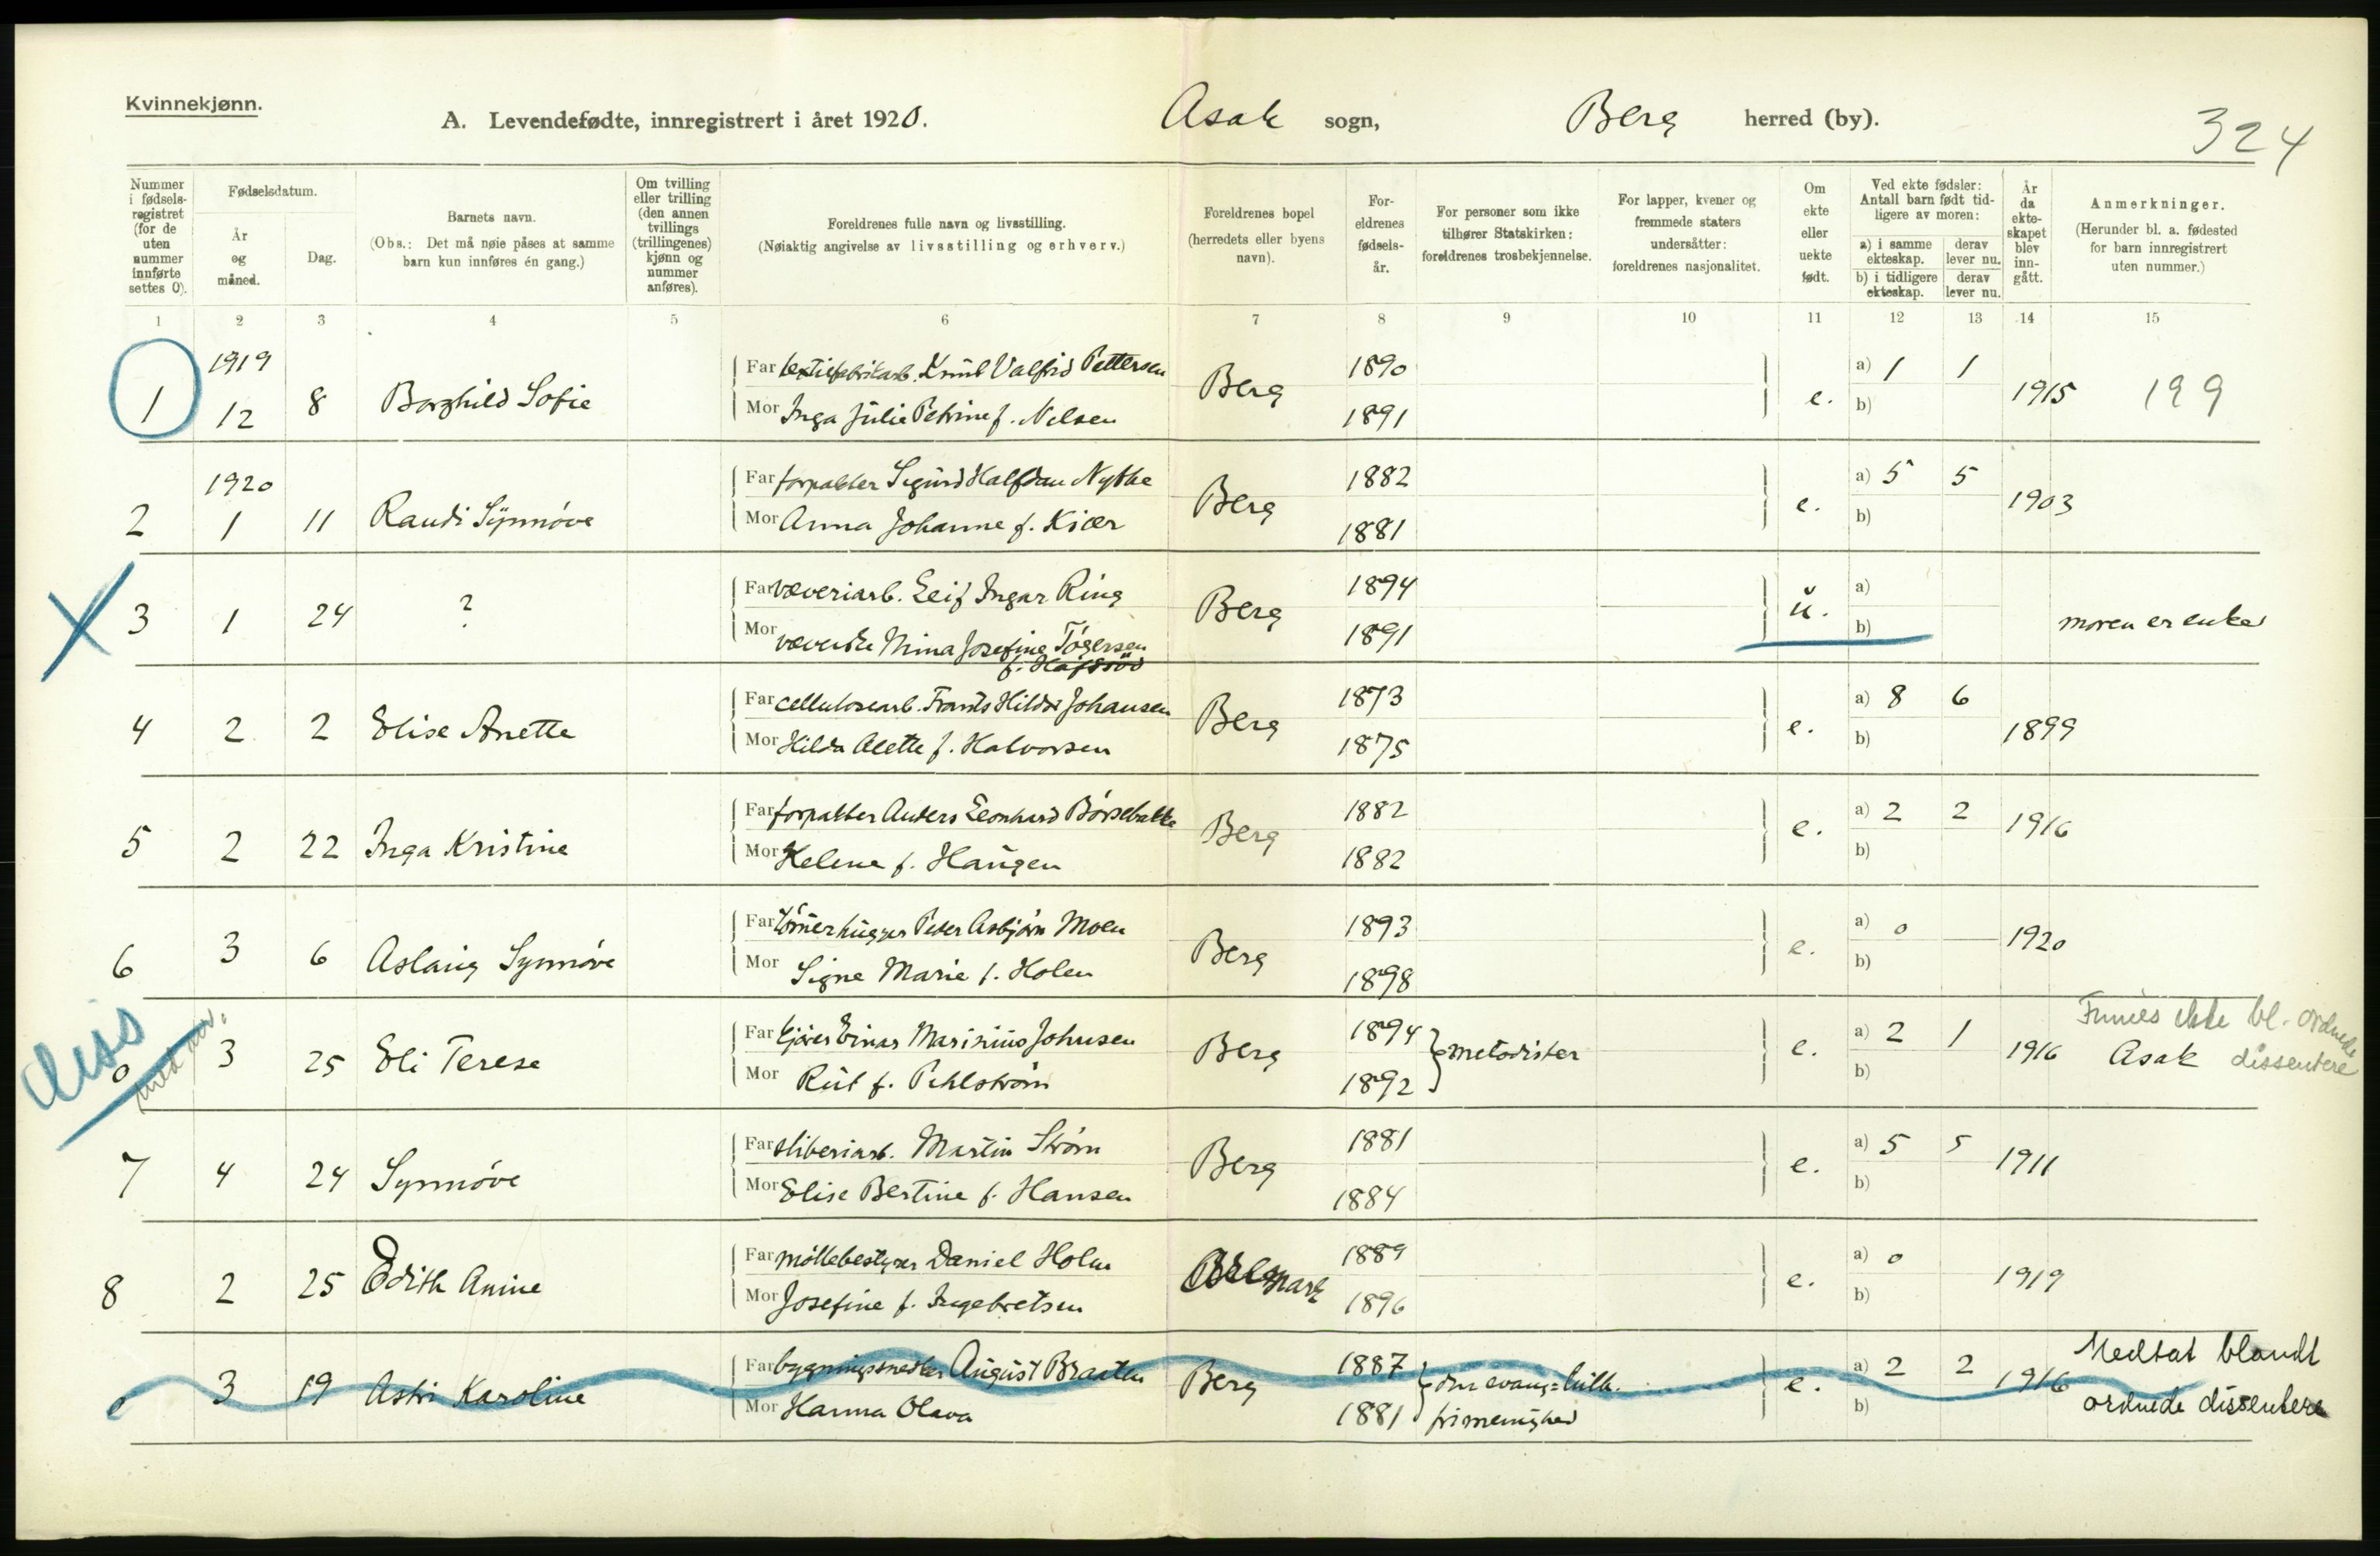 Kvinnekjønn.
A. Levendefødte, innregistrert i året 1920.
Asak sogn,
Berg herred (by).
324
Nummer i fødsels-registret (for de uten nummer innførte settes 0).
Fødselsdatum.
År og måned.
Dag.
Barnets navn.
(Obs.: Det må nøie påses at samme barn kun innføres én gang.)
Om tvilling eller trilling (den annen tvillings (trillingenes) kjønn og nummer anføres).
Foreldrenes fulle navn og livsstilling.
(Nøiaktig angivelse av livsstilling og erhverv.)
Foreldrenes bopel (herredets eller byens navn).
For-eldrenes fødsels-år.
For personer som ikke tilhører Statskirken: foreldrenes trosbekjennelse.
For lapper, kvener og fremmede staters undersåtter: foreldrenes nasjonalitet.
Om ekte eller uekte født.
Ved ekte fødsler: Antall barn født tid-ligere av moren:
a) i samme ekteskap.
derav lever nu.
b) i tidligere ekteskap.
derav lever nu.
År da ekte-skapet blev inn-gått.
Anmerkninger.
(Herunder bl. a. fødested for barn innregistrert uten nummer.)
1 2 3 4 5 6 7 8 9 10 11 12 13 14 15
1 1919 12 8 Borghild Sofie
Far Knut Valfrid Pettersen Berg 1890 e. a) 1 1 1915 199
Mor Inga Julie Petrine f. Nilsen 1891 b)
2 1920 1 11 Randi Synnöve
Far forpakter Sigurd Halfdan Nythe Berg 1882 e. a) 5 5 1903
Mor Anna Johanne f. Kiær 1881 b)
3 1 24 ?
Far væveriarb. Leif Ingar Ring Berg 1894 u. a)
Mor væverske Mina Josefine Tögersen 1891 b) moren er enke
f. Hafsröd
4 2 2 Elise Anette
Far cellulosearb. Frants Hildor Johansen Berg 1873 e. a) 8 6 1899
Mor Hilda Alette f. Halvorsen 1875 b)
5 2 22 Inga Kristine
Far forpakter Anders Leonhard Börsebakke Berg 1882 e. a) 2 2 1916
Mor Helene f. Haugen 1882 b)
6 3 6 Aslaug Synnöve
Far tömmerhugger Peder Asbjörn Moen Berg 1893 e. a) 0 — 1920
Mor Signe Marie f. Holen 1898 b)
diss
0 3 25 Eli Terese
Far kjörer Einar Marinius Johnsen Berg 1894 metodister e. a) 2 1 1916 Asak
Mor Rut f. Pihlström 1892 b)
Finnes ikke bl. ordnede dissentere
7 4 24 Synnöve
Far sliberiarb. Martin Ström Berg 1881 e. a) 5 5 1911
Mor Elise Bertine f. Hansen 1884 b)
8 2 25 Edith Anine
Far möllebestyrer Daniel Holm 1889 e. a) 0 1919
Mor Josefine f. Ingebretsen 1896 b)
0 3 19 Astri Karoline
Far bygningssnedker August Braaten Berg 1887 den evang.=luth. e. a) 2 2 1916 Medtat blandt
Mor Hanna Olava 1881 frimenighed b) ordnede dissentere